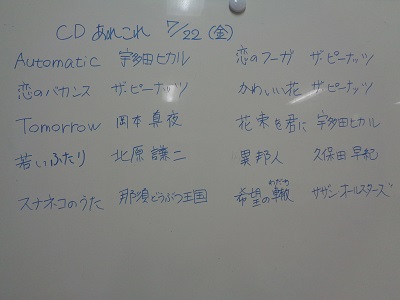 CD あれこれ 7/22 (金)
Automatic 宇多田ヒカル 恋のフーガ ザ・ピーナッツ
恋のバカンス ザ・ピーナッツ かわいい花 ザ・ピーナッツ
Tomorrow 岡本真夜 花束を君に 宇多田ヒカル
若いふたり 北原謙二 異邦人 久保田早紀
スナネコのうた 那須どうぶつ王国 希望の轍 わだち サザンオールスターズ